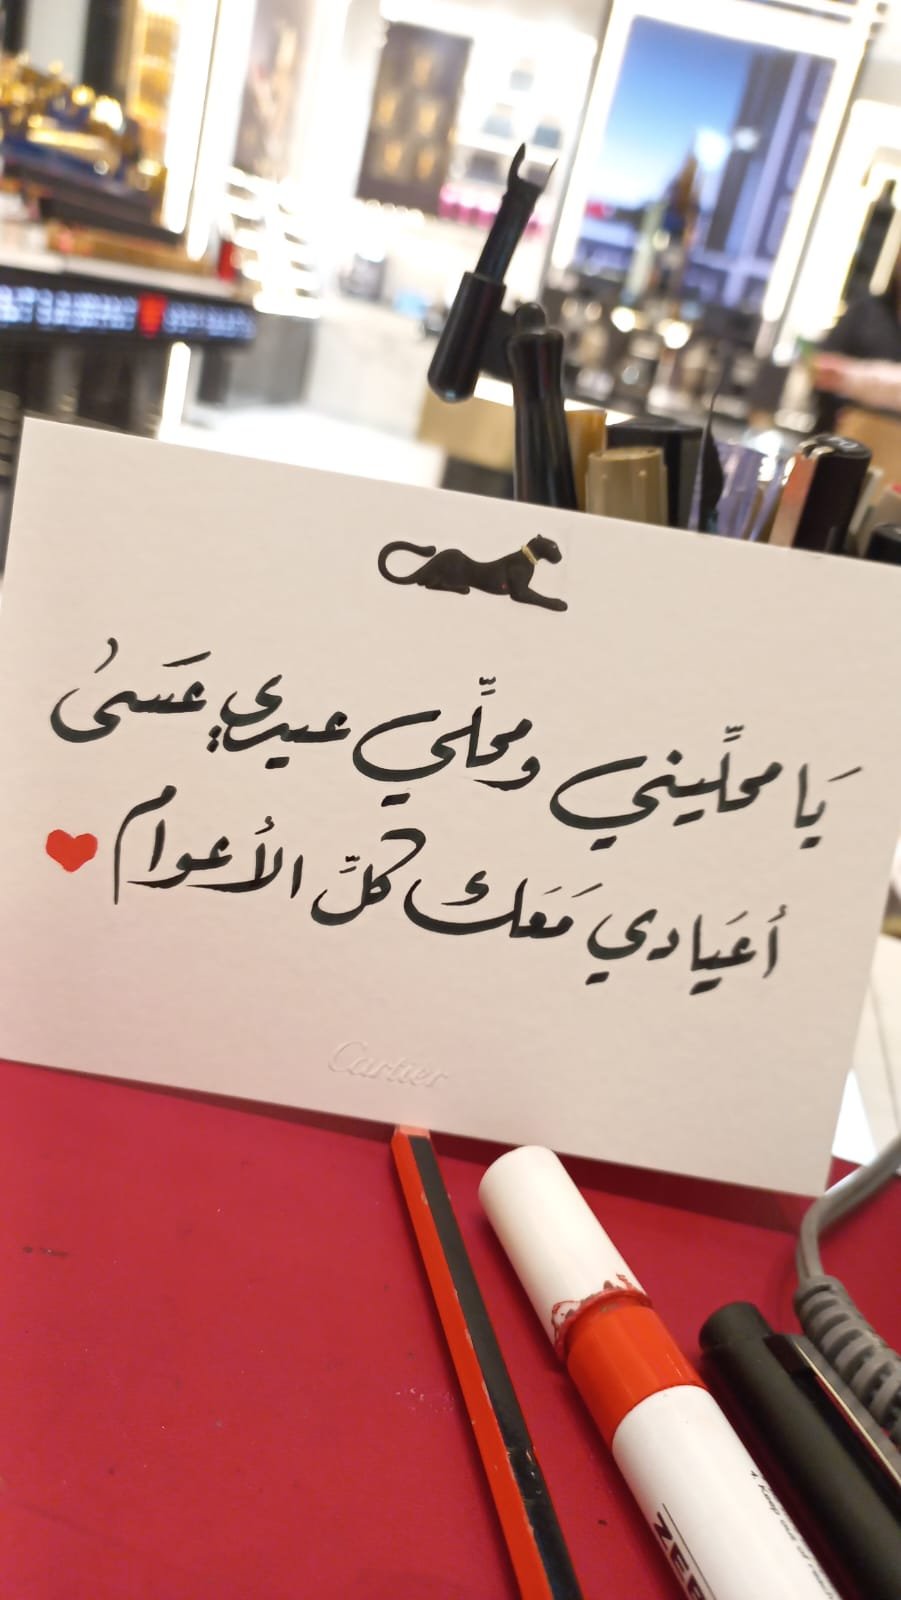 يَا محلِّيني ومحلِّي عيدي عَسَىٰ
أعَيادي مَعَك كلِّ الأعوام
Cartier
ZEB